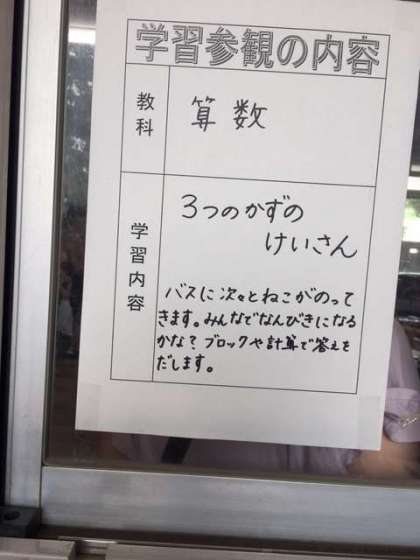 学習参観の内容
教科
算数
学習内容
3つのかずの
けいさん
バスに次々とねこがのって
きます。みんなでなんびきになる
かな？ブロックや計算で答えを
だします。